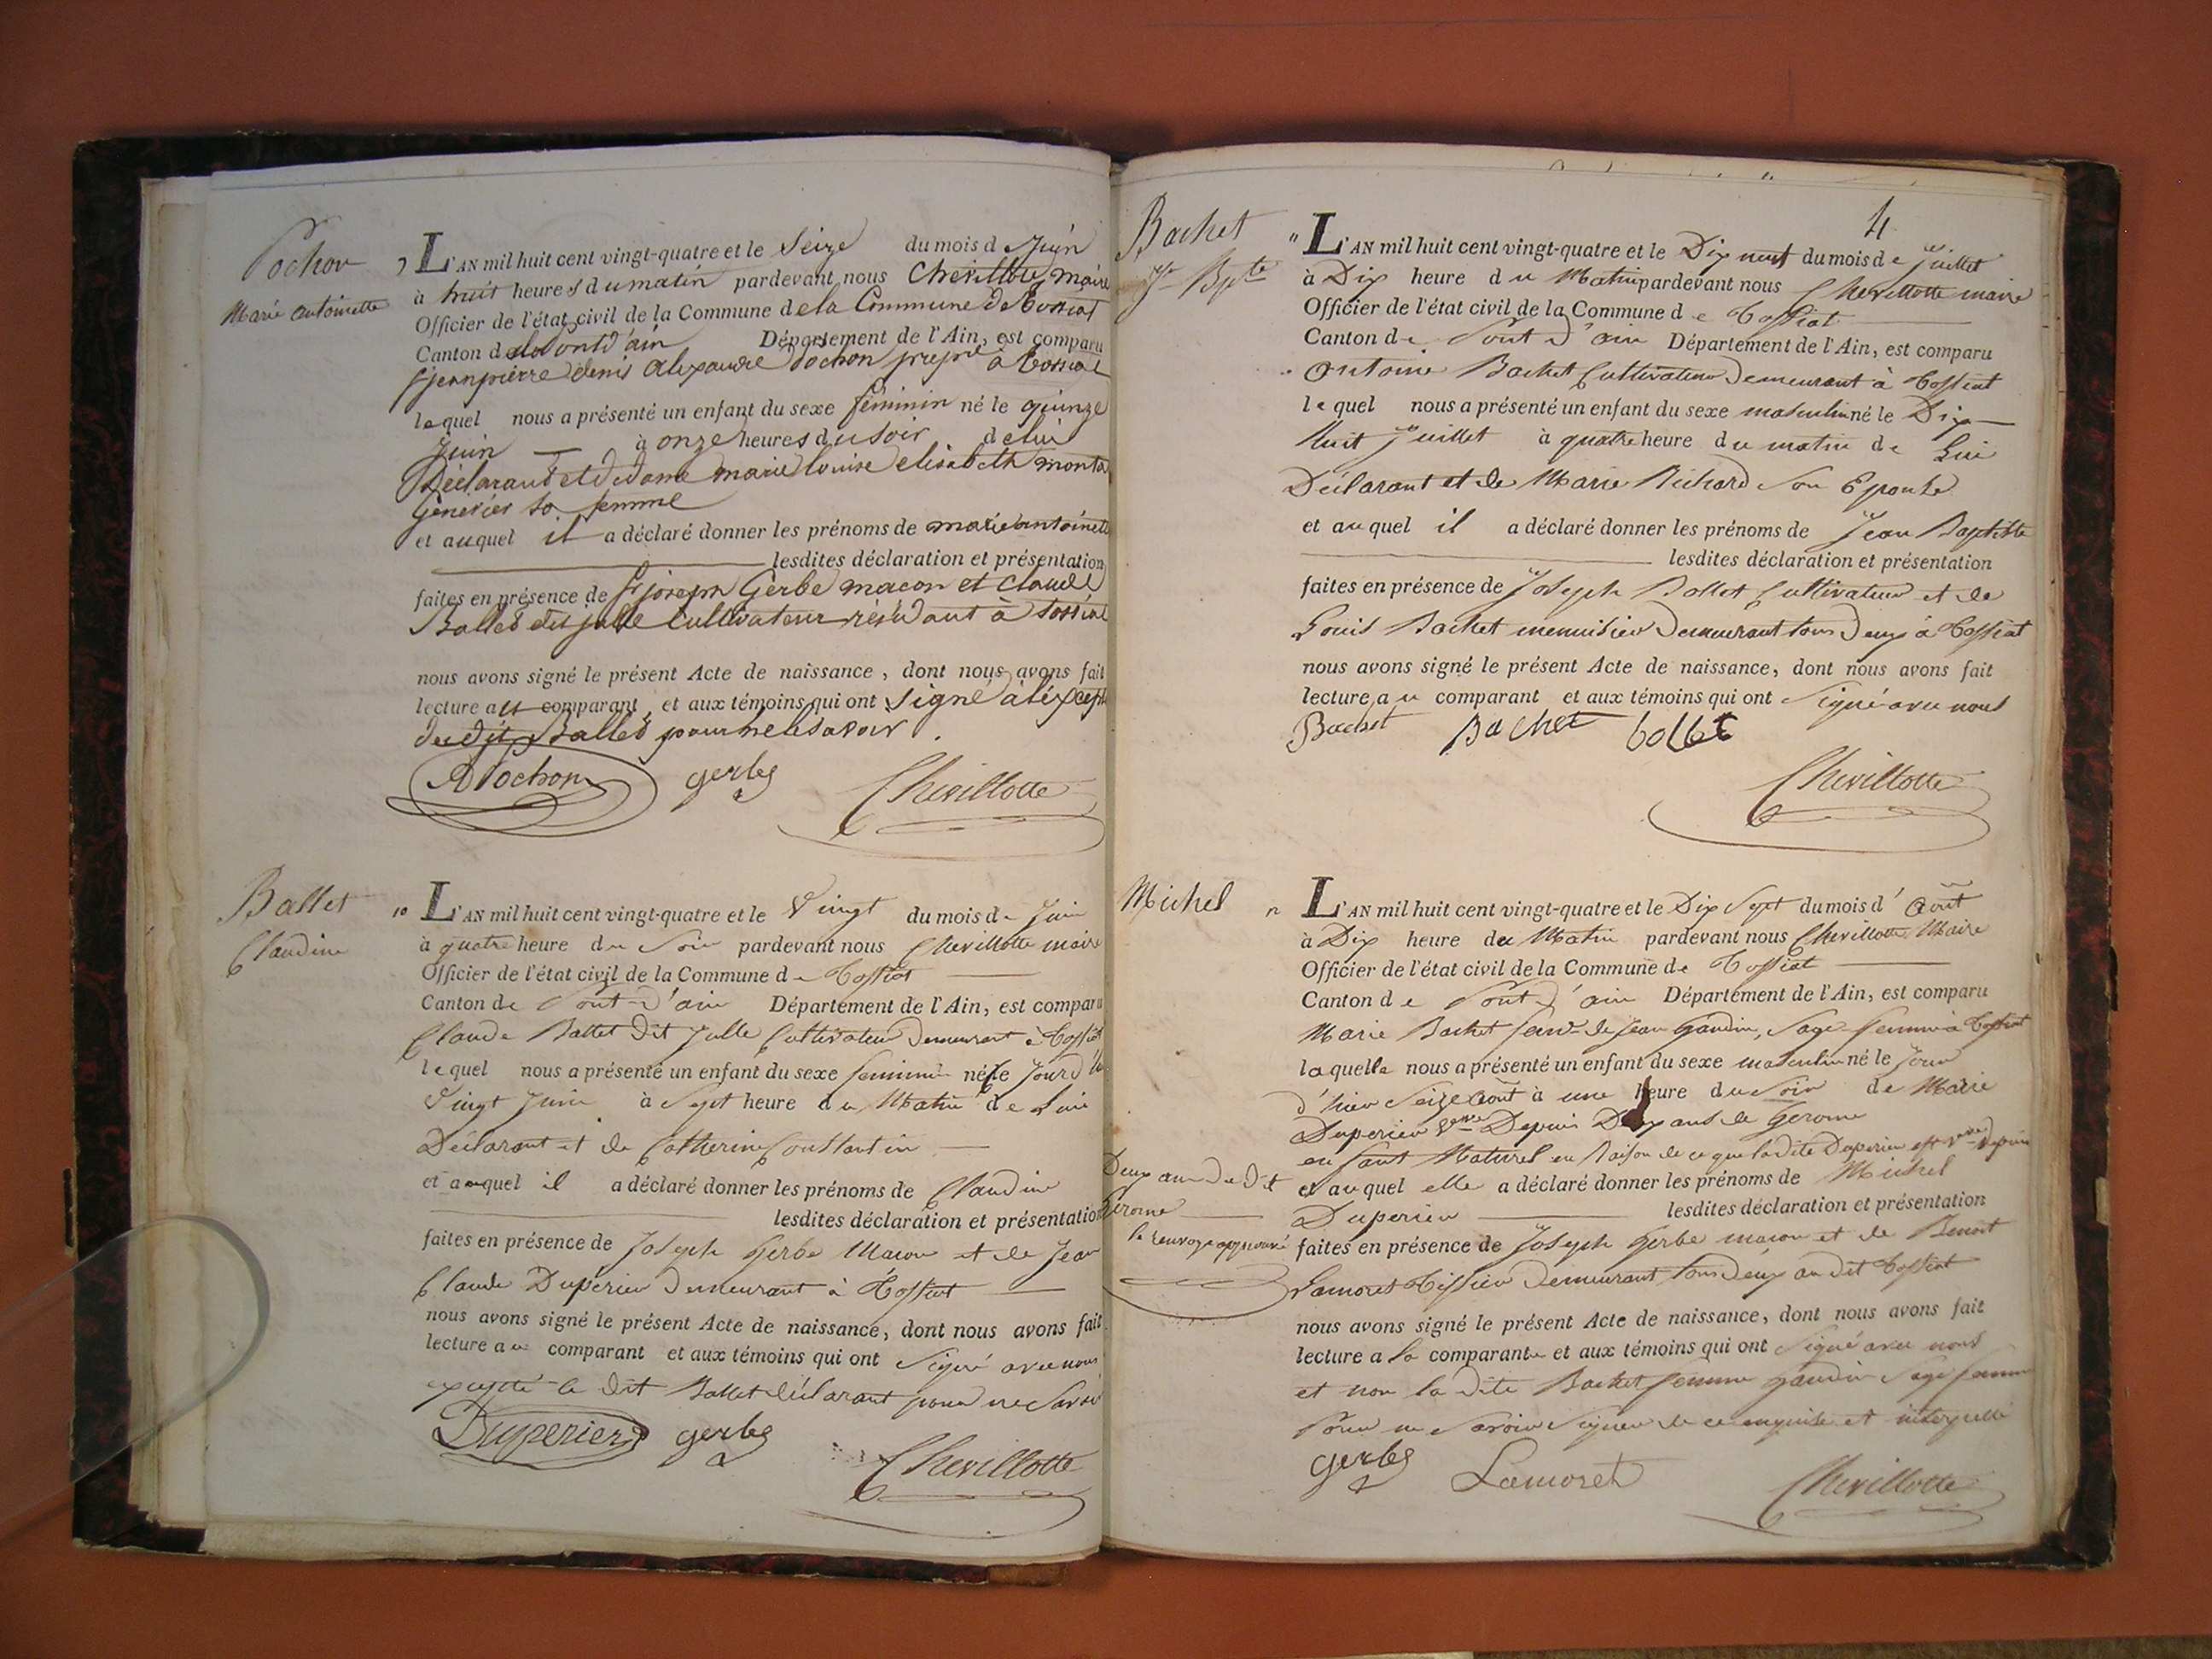 Pochon
Marie antoinette
9 L'AN mil huit cent vingt-quatre et le Seize du mois de Juin
à huit heures du matin pardevant nous Chevillotte maire
Officier de l'état civil de la Commune de la Commune de Tossiat
Canton de Pont d'ain Département de l'Ain, est comparu
Sr jean pierre denis alexandre Pochon propre à tossiat
lequel nous a présenté un enfant du sexe féminin né le quinze
Juin à onze heures du soir de lui
Déclarant et de dame marie louise elisabeth
sa femme
et auquel il a déclaré donner les prénoms de marie antoinette
lesdites déclaration et présentation
faites en présence de Sr joseph Gerbe macon et Claude
Ballet dit julle Cultivateur résidant à tossiat
nous avons signé le présent Acte de naissance, dont nous avons fait
lecture au comparant et aux témoins qui ont signé à l'exception
du dit Ballet pour ne le savoir.
APochon gerbe Chevillotte
Ballet
Claudine
10 L'AN mil huit cent vingt-quatre et le Vingt du mois de Juin
à quatre heure du Soir pardevant nous Chevillotte maire
Officier de l'état civil de la Commune de Tossiat
Canton de Pont-d'ain Département de l'Ain, est comparu
Claude Ballet dit Julle Cultivateur Demeurant à Tossiat
lequel nous a présenté un enfant du sexe feminin né le Jourd'hui
Vingt Juin à Sept heure du Matin de Lui
Déclarant et de Catherine Constantin
et auquel il a déclaré donner les prénoms de Claudine
lesdites déclaration et présentation
faites en présence de Joseph Gerbe Macon et de Jean
Claude Dupérier Demeurant à Tossiat
nous avons signé le présent Acte de naissance, dont nous avons fait
lecture au comparant et aux témoins qui ont Signé avec nous
excepté le dit Ballet déclarant pour ne Savoir
Duperier gerbe Chevillotte
4
Bachet
Jn Bpte
11 L'AN mil huit cent vingt-quatre et le Dix neuf du mois de Juillet
à Dix heure du Matin pardevant nous Chevillotte maire
Officier de l'état civil de la Commune de Tossiat
Canton de Pont d'ain Département de l'Ain, est comparu
Antoine Bachet Cultivateur Demeurant à Tossiat
lequel nous a présenté un enfant du sexe masculin né le Dix
huit Juillet à quatre heure du matin de Lui
Déclarant et de Marie Richard Son Epouse
et auquel il a déclaré donner les prénoms de Jean Baptiste
lesdites déclaration et présentation
faites en présence de Joseph Bollet Cultivateur et de
Louis Bachet menuisier Demeurant tous Deux à Tossiat
nous avons signé le présent Acte de naissance, dont nous avons fait
lecture au comparant et aux témoins qui ont Signé avec nous
Bachet Bachet bollet
Chevillotte
Michel
12 L'AN mil huit cent vingt-quatre et le Dix Sept du mois d'Août
à Dix heure du Matin pardevant nous Chevillotte Maire
Officier de l'état civil de la Commune de Tossiat
Canton de Pont d'ain Département de l'Ain, est comparu
Marie Bachet femme de Jean Gaudin, Sage-femme à Tossiat
laquelle nous a présenté un enfant du sexe masculin né le Jour
d'hier Seize Août à une heure du Soir de Marie
Duperier Veuve Depuis Deux ans de Gerome
enfant Naturel en Raison de ce que la dite Duperier est Veuve depuis
Deux ans du dit
Gerome
le renvoye approuvé
et auquel elle a déclaré donner les prénoms de Michel
Duperier lesdites déclaration et présentation
faites en présence de Joseph Gerbe macon et de Benoit
Lamoret Tissier Demeurant tous deux au dit Tossiat
nous avons signé le présent Acte de naissance, dont nous avons fait
lecture a la comparante et aux témoins qui ont Signé avec nous
et non la dite Bachet femme Gaudin Sage femme
Pour ne Savoir Signer de ce enquise et interpellé
gerbe Lamoret Chevillotte